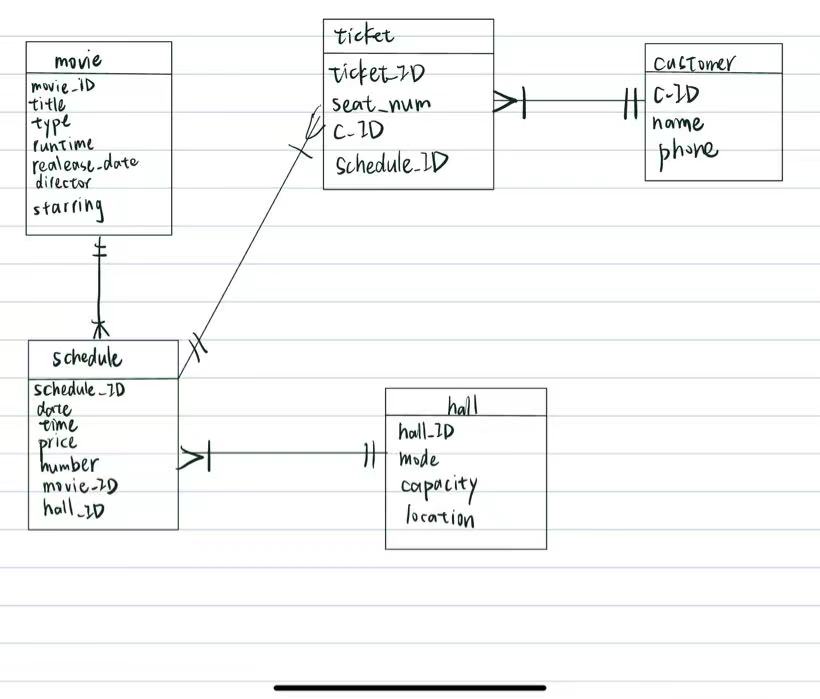 movie
movie_ID
title
type
runtime
realease_date
director
starring
ticket
ticket_ID
seat_num
C_ID
schedule_ID
customer
C-ID
name
phone
schedule
schedule_ID
date
time
price
number
movie_ID
hall_ID
hall
hall_ID
mode
capacity
location